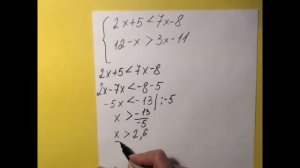 { 2x+5<7x-8
12-x>3x-11
2x+5<7x-8
2x-7x<-8-5
-5x<-13 |:-5
x > -13/-5
x > 2,6